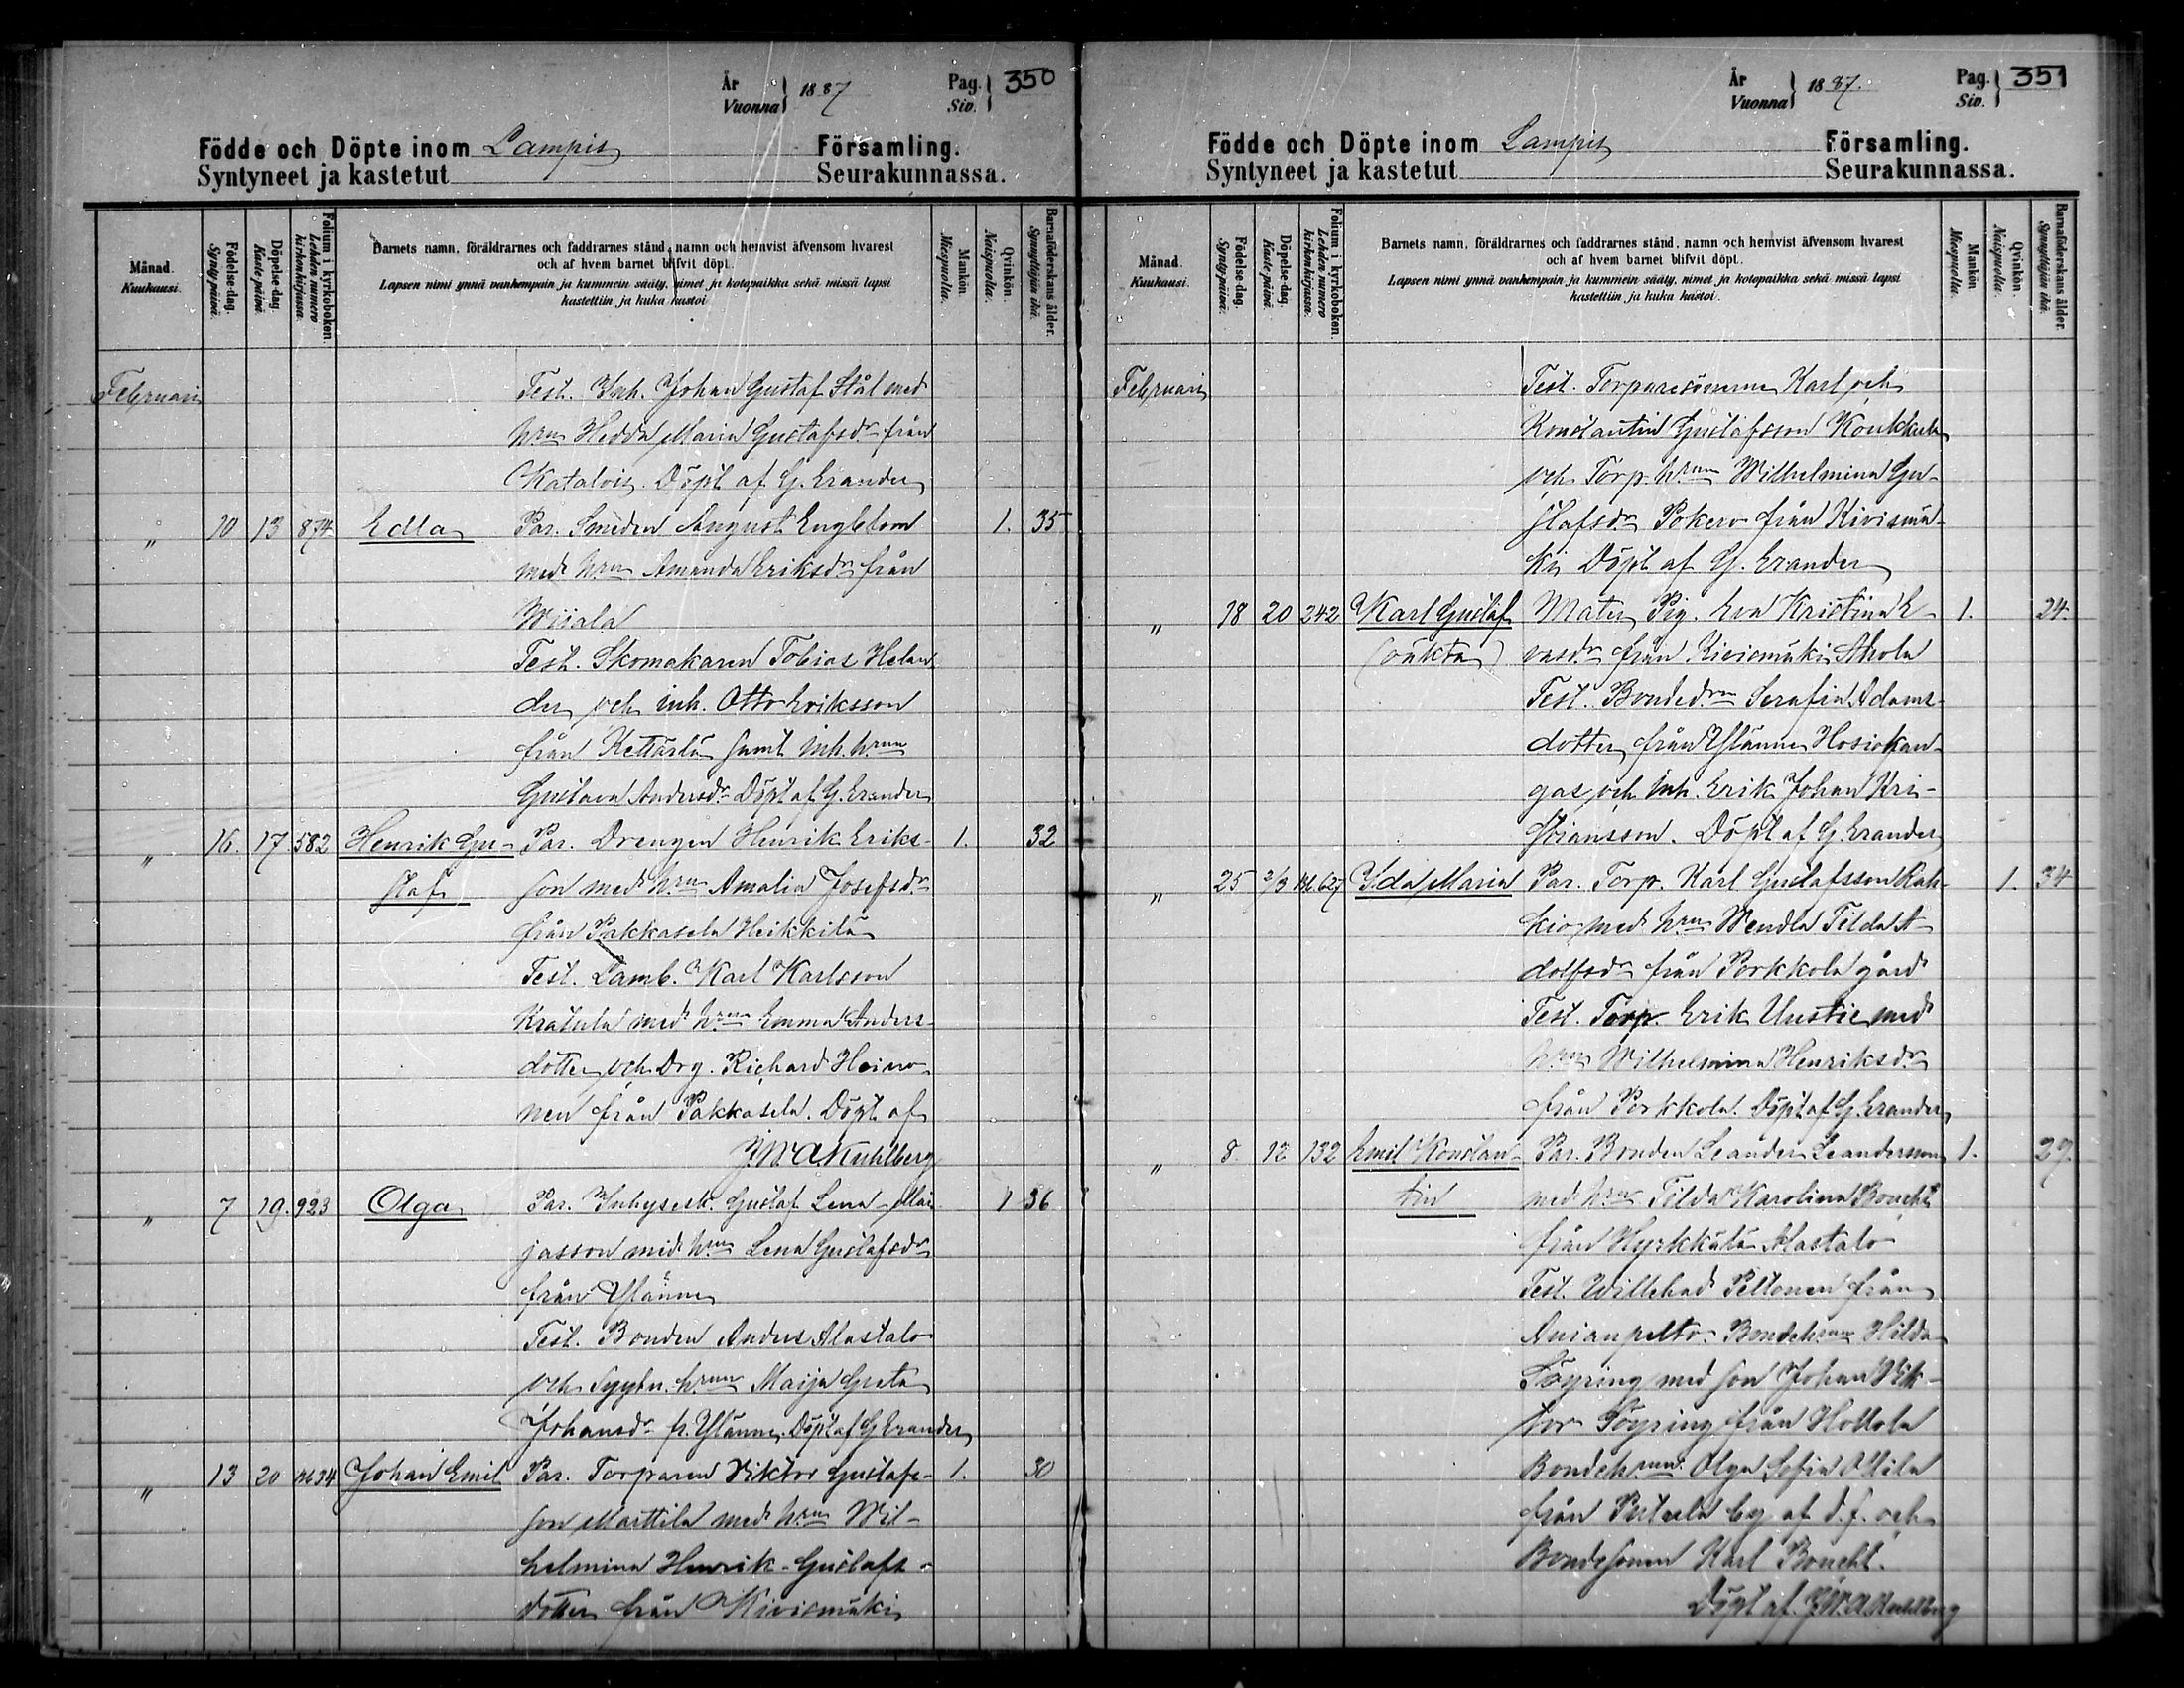 År
Vuonna
1887
Pag.
Siv.
350
Födde och Döpte inom Lampis Församling.
Syntyneet ja kastetut Seurakunnassa.
Månad.
Kuukausi.
Födelse-dag.
Synty-päivä.
Döpelse-dag.
Kaste-päivä.
Folium i kyrkoboken.
Lehden numero kirkonkirjassa.
Barnets namn, föräldrarnes och faddrarnes stånd, namn och hemvist äfvensom hvarest
och af hvem barnet blifvit döpt.
Lapsen nimi ynnä vanhempain ja kummein sääty, nimet ja kotopaikka sekä missä lapsi
kastettiin ja kuka kastoi.
Mankön.
Miespuolia.
Qvinkön.
Naispuolia.
Barnaföderskans ålder.
Synnyttäjän ikä.
Februari Test. Inh. Johan Gustaf Stål med
hrun Hedda Maria Gustafsdr från
Katalois. Döpt af G. Erander
" 10 13 874 Edla Par. Smeden August Engblom 1. 35
med hrun Amanda Eriksdr från
Wiiala
Test. Skomakaren Tobias Helan
der och inh. Otto Eriksson
från Kettärlä samt inh. hrun
Gustava Andersdr Döpt af G. Erander
" 16. 17. 582 Henrik Gu- Par. Drengen Henrik Eriks- 1. 32
staf son med hrun Amalia Josefsdr
från Pakkasela Heikkilä
Test. Lamb. Karl Karlsson
Kratula med hrun Emma Anders-
dotter och Drg. Richard Heino
nen från Pakkasela. Döpt af
J. W. A. Kuhlberg
" 7 19. 923 Olga Par. Inhysesk. Gustaf Lena-Mai 1 36
jasson med hrun Lena Gustafsdr
från Ylänne
Test. Bonden Anders Alastalo
och hrun Maija Greta
Johansdr fr. Ylänne. Döpt af G Erander
" 13 20 1634 Johan Emil Par. Torparen Viktor Gustafs- 1. 30
son Marttila med hrun Wil-
helmina Henrik-Gustafs-
dotter från Kivismäki
År
Vuonna
1887.
Pag.
Siv.
351
Födde och Döpte inom Lampis Församling.
Syntyneet ja kastetut Seurakunnassa.
Månad.
Kuukausi.
Födelse-dag.
Synty-päivä.
Döpelse-dag.
Kaste-päivä.
Folium i kyrkoboken.
Lehden numero kirkonkirjassa.
Barnets namn, föräldrarnes och faddrarnes stånd, namn och hemvist äfvensom hvarest
och af hvem barnet blifvit döpt.
Lapsen nimi ynnä vanhempain ja kummein sääty, nimet ja kotopaikka sekä missä lapsi
kastettiin ja kuka kastoi.
Mankön.
Miespuolia.
Qvinkön.
Naispuolia.
Barnaföderskans ålder.
Synnyttäjän ikä.
Februari Test. Torparesönerne Karl och
Konstantin Gustafsson Koukkula
och Torp. hrun Wilhelmina Gu-
stafsdr Pokero från Kivismä-
ki Döpt af G. Erander
" 18 20 242 Karl Gustaf Mater, Pig. Eva Kristina E- 1. 24.
(oäkta) vasdr från Kivismäki Ahola
Test. Bondedrn Serafina Adams-
dotter från Ylänne Hosiokan-
gas och inh. Erik Johan Kri-
stiansson. Döpt af G. Erander
" 25 2/3 627 Ida Maria Par. Torp. Karl Gustafsson Rak- 1. 34
kio med hrun Wendla Tilda A-
dolfsdr från Porkkola gård
Test. Torp. Erik Uustie med
hrun Wilhelmina Henriksdr
från Porkkola. Döpt af G. Erander
" 8 12 132 Emil Konstan- Par. Bonden Leander Leandersson 1. 27.
tin med hrun Tilda Karolina Boucht
från Hyrkkälä Alastalo
Test. Willehad Peltonen från
Anianpelto. Bondehrun Hilda
Töyring med son Johan Vik-
tor Töyring från Hollola
Bondehrun Olga Sofia Ollila
från Putula by af d. f. och
Bondesonen Karl Boucht.
Döpt af. J. W. A. Kuhlberg